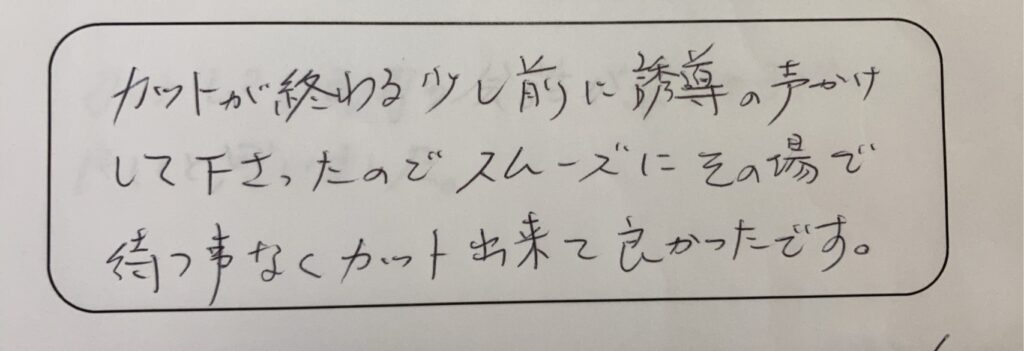 カットが終わる少し前に誘導の声かけ
して下さったのでスムーズにその場で
待つ事なくカット出来て良かったです。